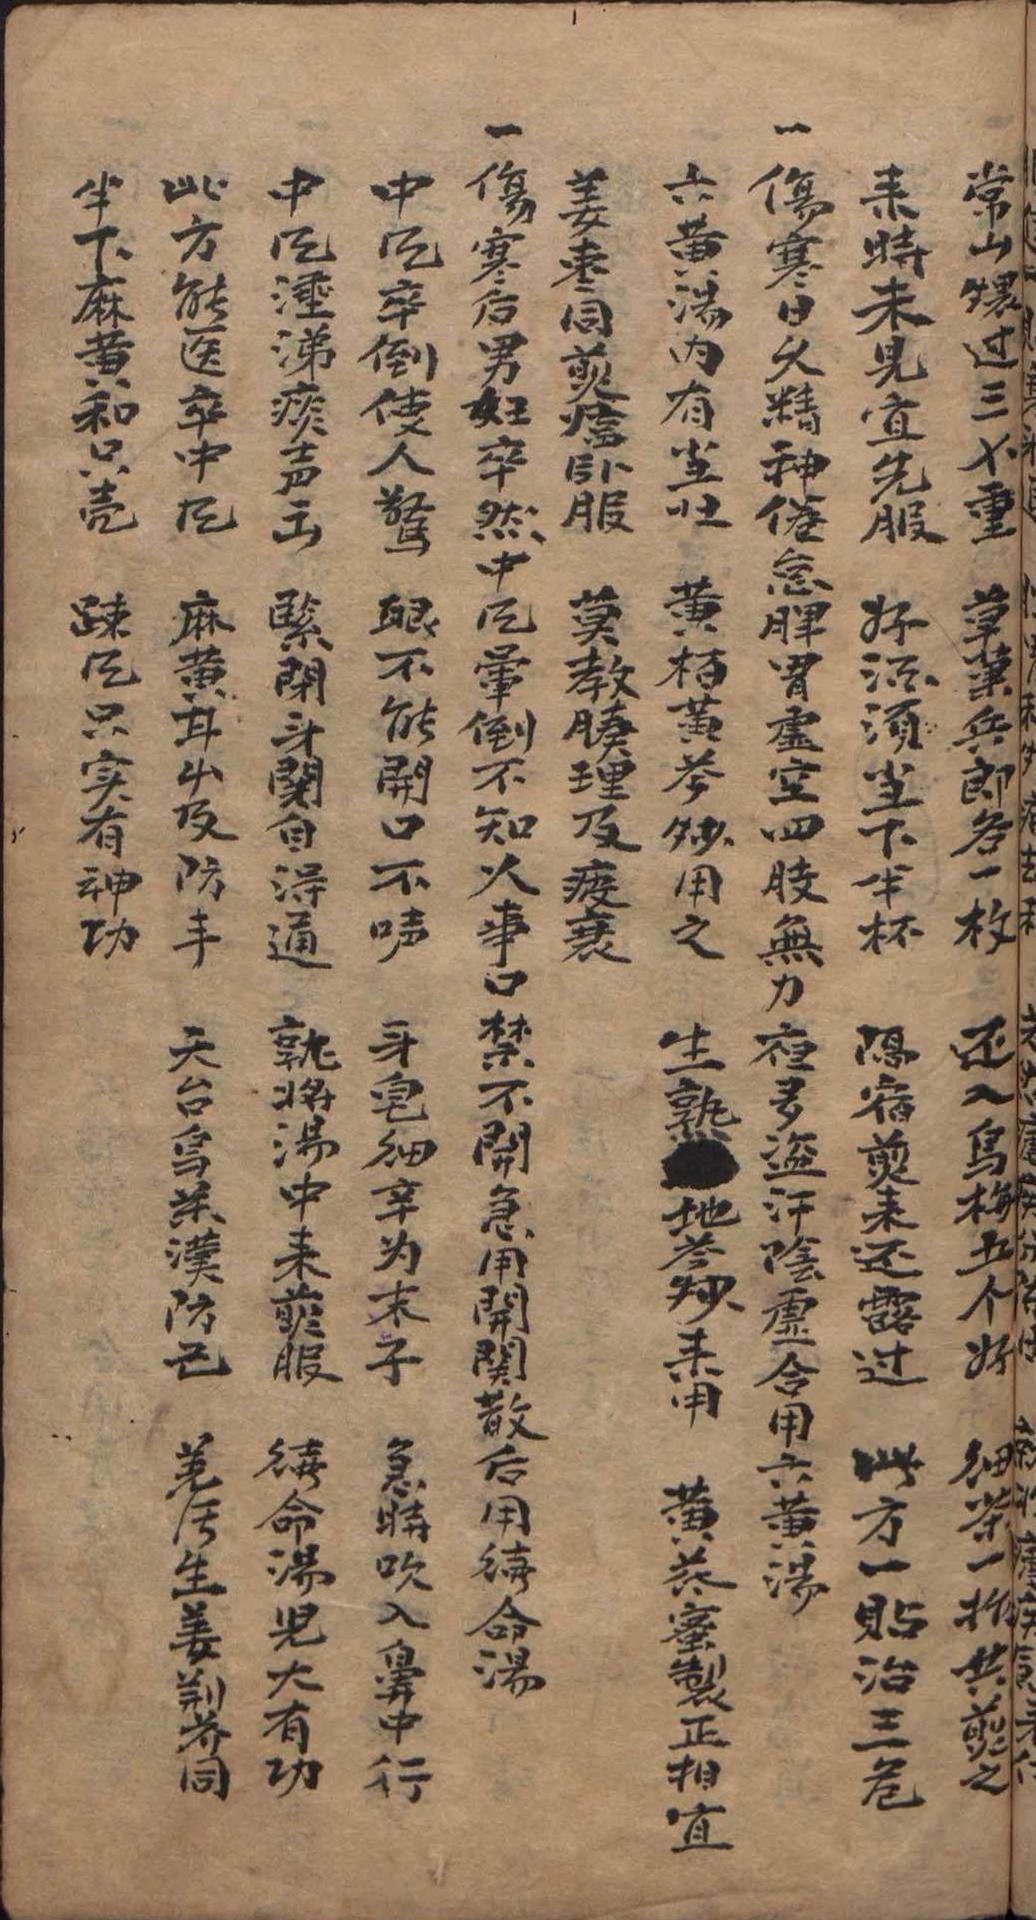 常山煨过三不重 草菓兵郎各一枚 还入烏梅五个好 細茶一抓共煎之
来時未見宜先服 好酒須当下半杯 隔宿煎来还露过 此方一貼治三危
一傷寒日久精神倦怠脾胃虚空四肢無力夜多盗汗陰虚合用六黄湯
六黄湯内有当壮 黄栢黄芩炒用之 生熟地芩炒来用 黄芪蜜製正相宜
姜枣同煎𤺥卧服 莫教腠理及疲衰
一傷寒后男妇卒然中風暈倒不知人事口禁不開急用開関散后用續命湯
中風卒倒使人驚 眼不能開口不声 牙皂細辛为末子 急時吹入鼻中行
中風涶涕痰声玉 緊閉牙関自得通 孰将湯中来煎服 續命湯児大有功
此方能医卒中風 麻黄耳少及防丰 天台烏薬漢防己 羌活生姜荆芥同
半下麻黄和只壳 疎風只实有神功